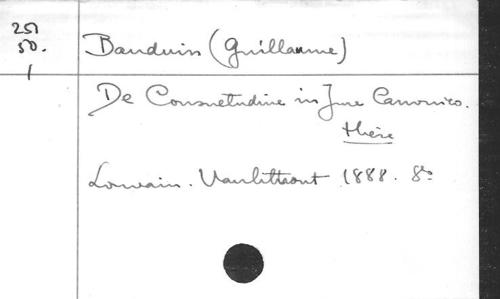 251
50.
1
Bauduin (Guillaume)
De Consuetudine in Jure Canonico.
thèse
Louvain. Vanlinthout 1888. 8vo